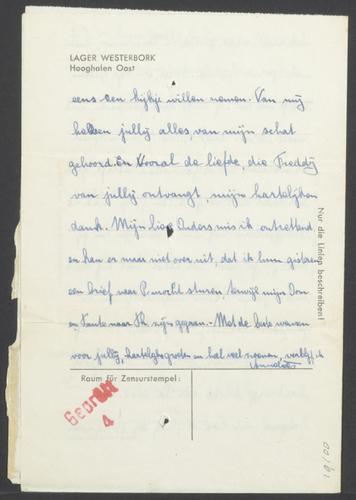 LAGER WESTERBORK
Hooghalen Oost
eens een kijkje willen nemen. Van mij
hebben jullij alles, van mijn schat
gehoord. En Vooral de liefde, die Freddy
van jullij ontvangt, mijn hartelijken
dank. Mijn lieve Ouders mis ik ontzettend
en kan er maar niet over uit, dat ik hun gisteren
een brief naar P. mocht sturen, terwijl mijn Oom
en Tante naar Th. zijn gegaan. - Met de beste wensen
voor jullij, hartelijke groeten en heel veel zoenen, verblijf ik
Nur die Linien beschreiben!
Raum für Zensurstempel:
Geprüft
4